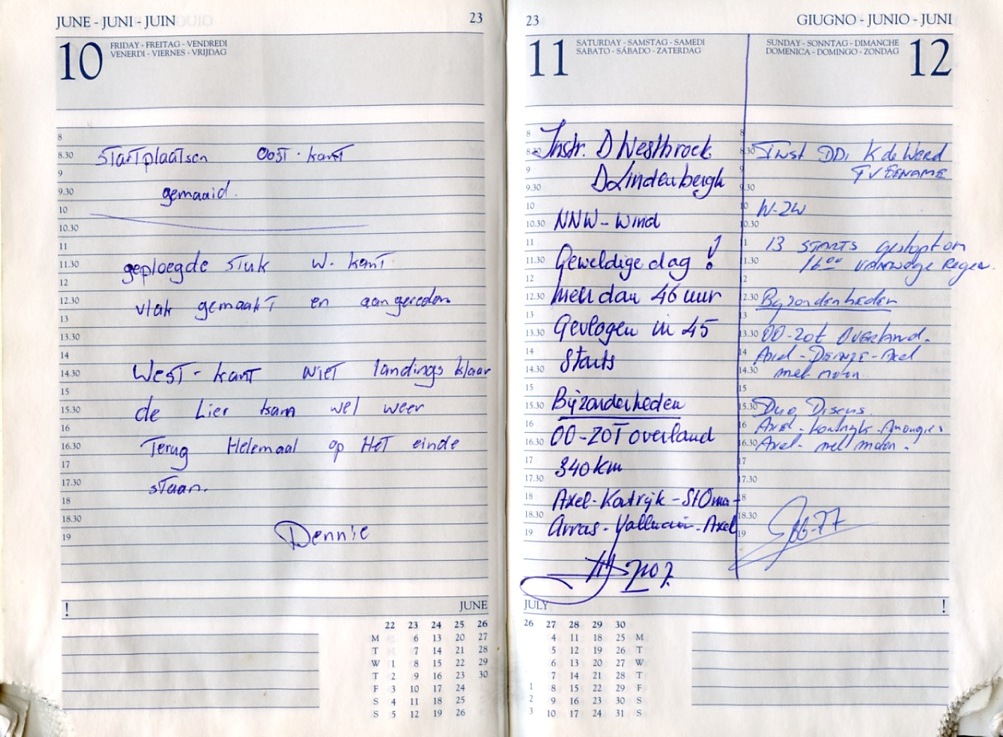 JUNE - JUNI - JUIN 23
10 FRIDAY - FREITAG - VENDREDI
VENERDI - VIERNES - VRIJDAG
8
8.30 Startplaatsen Oost-kant
9
9.30 gemaaid.
10
10.30
11
11.30 geploegde stuk W. kant
12
12.30 vlak gemaakt en aangereden
13
13.30
14
14.30 West-kant niet landings klaar
15
15.30 de Lier kam wel weer
16
16.30 Terug Helemaal op Het einde
17
17.30 staan.
18
18.30
19 Dennie
! JUNE
22 23 24 25 26
M 6 13 20 27
T 7 14 21 28
W 1 8 15 22 29
T 2 9 16 23 30
F 3 10 17 24
S 4 11 18 25
S 5 12 19 26
23
11 SATURDAY - SAMSTAG - SAMEDI
SABATO - SÁBADO - ZATERDAG
8
8.30 Instr. D Westbroek
9
9.30 D Lindenbergh
10
10.30 NNW-Wind
11
11.30 Geweldige dag!
12
12.30 meer dan 46 uur
13
13.30 Gevlogen in 45
14
14.30 Starts
15
15.30 Bijzonderheden
16
16.30 OO-ZOT overland
17
17.30 340km
18 Axel-Kortrijk-St Omer-
18.30
19 Arras-Axel
JULY
26 27 28 29 30
4 11 18 25 M
5 12 19 26 T
6 13 20 27 W
7 14 21 28 T
1 8 15 22 29 F
2 9 16 23 30 S
3 10 17 24 31 S
GIUGNO - JUNIO - JUNI
SUNDAY - SONNTAG - DIMANCHE
DOMENICA - DOMINGO - ZONDAG 12
Inst DDI K de Weerd
W-ZW
13 starts gestopt om
16.00 vanwege Regen.
Bijzonderheden
OO-ZOT Overland.
Axel-Deinze-Axel
met motor.
Duo Discus.
Axel-Kortrijk-
Axel- met motor.
!